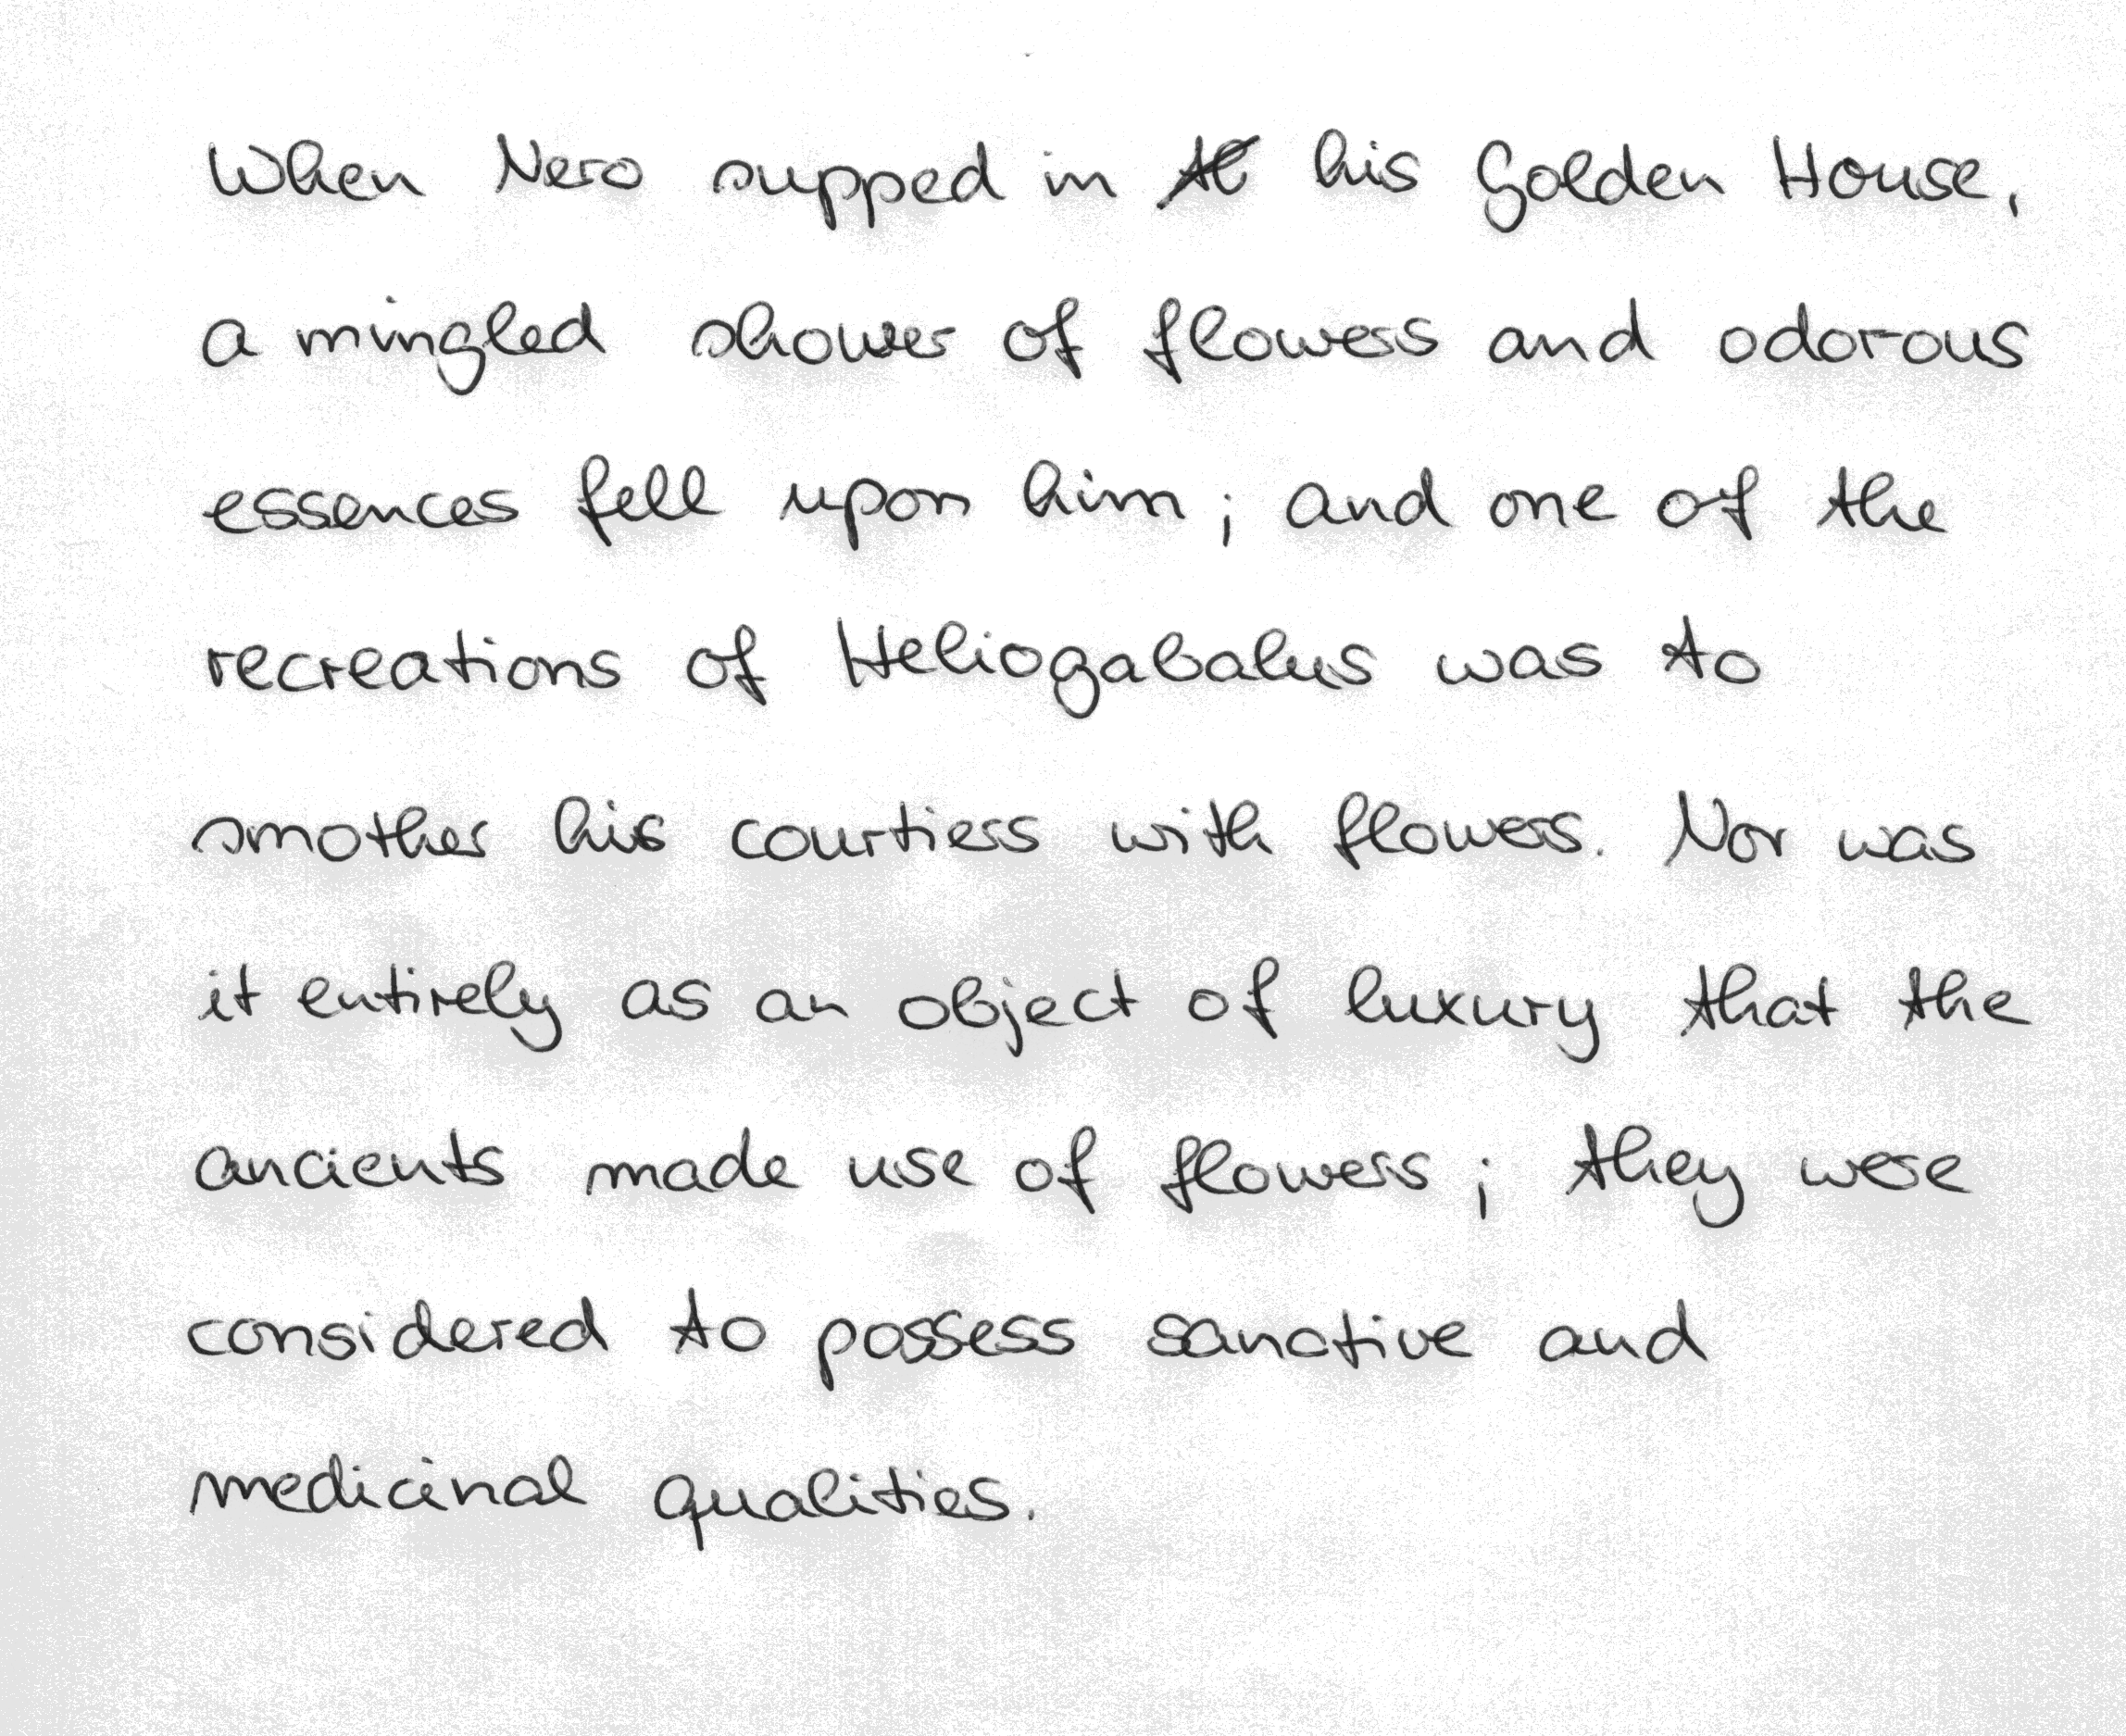 When Nero supped in his Golden House,
a mingled shower of flowers and odorous
essences fell upon him ; and one of the
recreations of Heliogabalus was to
smother his courtiers with flowers. Nor was
it entirely as an object of luxury that the
ancients made use of flowers ; they were
considered to possess sanctive and
medicinal qualities.